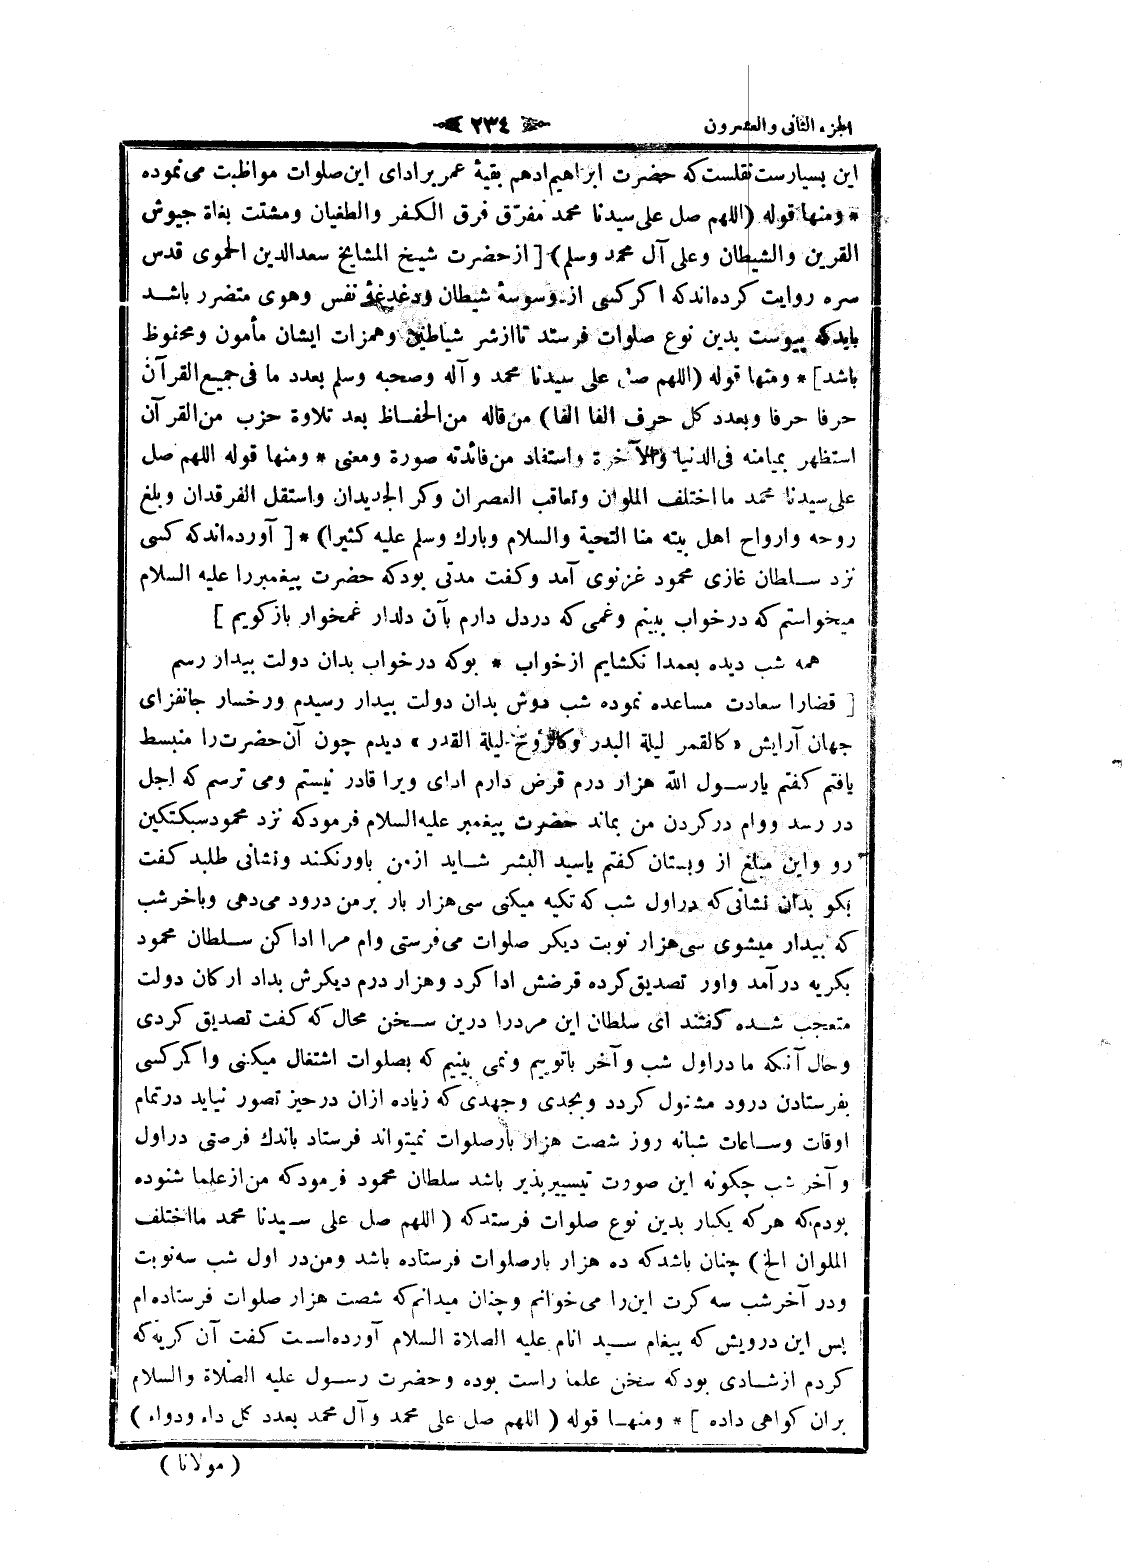 الجزء الثانی والعشرون
﴿ ٢٣٤ ﴾
این بسیارست نقلست که حضرت ابراهیم ادهم بقیهٔ عمر بر ادای این صلوات مواظبت می نموده
* ومنها قوله (اللهم صل علی سیدنا محمد مفرّق فرق الکفر والطغیان ومشتت بغاة جیوش
القرین والشیطان وعلی آل محمد وسلم) [ از حضرت شیخ المشایخ سعدالدین الحموی قدس
سره روایت کرده اند که اکر کسی از وسوسهٔ شیطان ودغدغهٔ نفس وهوی متضرر باشد
باید که پیوست بدین نوع صلوات فرستد تا ازشر شیاطین وهمزات ایشان مأمون ومحفوظ
باشد] * ومنها قوله (اللهم صل علی سیدنا محمد وآله وصحبه وسلم بعدد ما فی جمیع القرآن
حرفا حرفا وبعدد کل حرف الفا الفا) من قاله من الحفاظ بعد تلاوة حزب من القرآن
استظهر بمیامنه فی الدنیا والآخرة واستفاد من فائدته صورة ومعنی * ومنها قوله اللهم صل
علی سیدنا محمد ما اختلف الملوان وتعاقب العصران وکر الجدیدان واستقل الفرقدان وبلغ
روحه وارواح اهل بیته منا التحیة والسلام وبارك وسلم علیه کثیرا) * [ آورده اند که کسی
نزد سلطان غازی محمود غزنوی آمد وکفت مدتی بود که حضرت پیغمبررا علیه السلام
میخواستم که در خواب ببینم وغمی که در دل دارم بآن دلدار غمخوار باز کویم ]
همه شب دیده بعمدا نکشایم از خواب * بوکه در خواب بدان دولت بیدار رسم
[ قضارا سعادت مساعده نموده شب دوش بدان دولت بیدار رسیدم ورخسار جانفزای
جهان آرایش « کالقمر لیلة البدر وکالروح لیلة القدر » دیدم چون آن حضرت را منبسط
یافتم کفتم یا رسول الله هزار درم قرض دارم ادای ویرا قادر نیستم ومی ترسم که اجل
در رسد ووام در کردن من بماند حضرت پیغمبر علیه السلام فرمود که نزد محمود سبکتکین
رو واین مبلغ از وبستان کفتم یا سید البشر شاید از من باور نکند ونشانی طلبد کفت
بکو بدان نشانی که در اول شب که تکیه میکنی سی هزار بار بر من درود می دهی وباخر شب
که بیدار میشوی سی هزار نوبت دیکر صلوات می فرستی وام مرا ادا کن سلطان محمود
بکریه در آمد واور تصدیق کرده قرضش ادا کرد وهزار درم دیکرش بداد ارکان دولت
متعجب شده کفتند ای سلطان این مردرا درین سخن محال که کفت تصدیق کردی
وحال آنکه ما در اول شب وآخر با توییم ونمی بینیم که بصلوات اشتغال میکنی واکر کسی
بفرستادن درود مشغول کردد وبجدی وجهدی که زیاده ازان در حیز تصور نیاید در تمام
اوقات وساعات شبانه روز شصت هزار بار صلوات نمیتواند فرستاد باندك فرصتی در اول
وآخر شب چکونه این صورت تیسیر پذیر باشد سلطان محمود فرمود که من از علما شنوده
بودم که هر که یکبار بدین نوع صلوات فرستد که ( اللهم صل علی سیدنا محمد ما اختلف
الملوان الخ ) چنان باشد که ده هزار بار صلوات فرستاده باشد ومن در اول شب سه نوبت
ودر آخر شب سه کرت این را می خوانم وچنان میدانم که شصت هزار صلوات فرستاده ام
پس این درویش که پیغام سید انام علیه الصلاة السلام آورده است کفت آن کریه که
کردم از شادی بود که سخن علما راست بوده وحضرت رسول علیه الصلاة والسلام
بران کواهی داده ] * ومنها قوله ( اللهم صل علی محمد وآل محمد بعدد کل داء ودواء )
( مولانا )